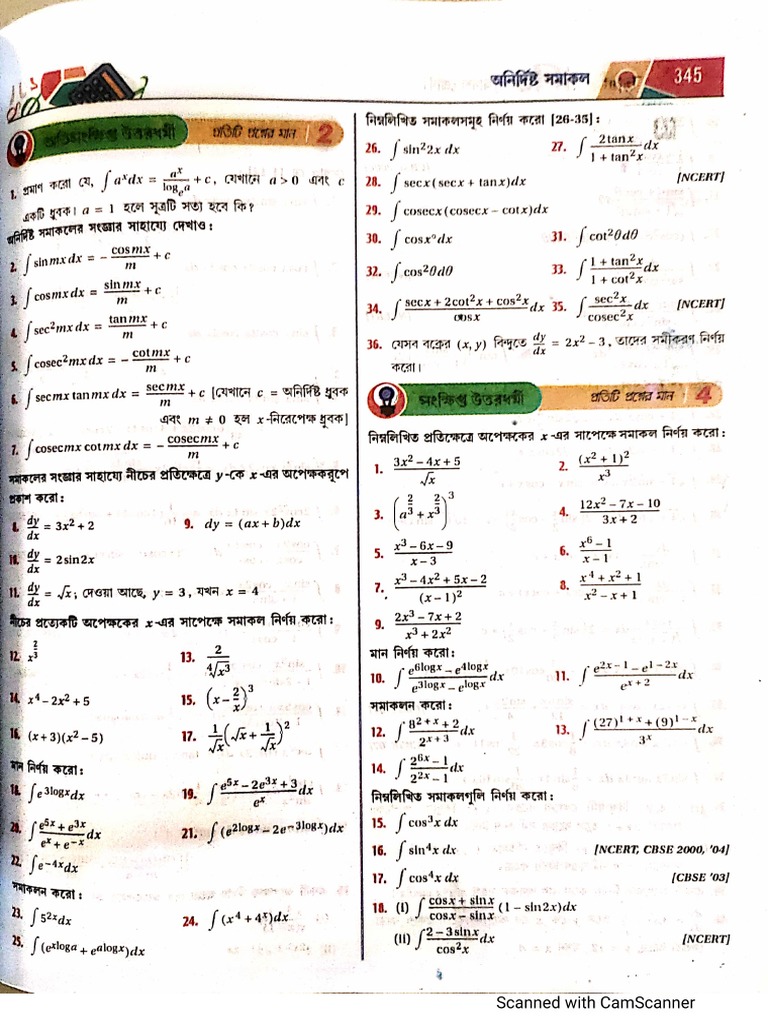 অনির্দিষ্ট সমাকল
345
অতিসংক্ষিপ্ত উত্তরধর্মী প্রতিটি প্রশ্নের মান 2
1. প্রমাণ করো যে, ∫a^x dx = a^x/log_e a + c, যেখানে a > 0 এবং c
একটি ধ্রুবক। a = 1 হলে সূত্রটি সত্য হবে কি?
অনির্দিষ্ট সমাকলের সংজ্ঞার সাহায্যে দেখাও :
2. ∫sin mx dx = − cos mx/m + c
3. ∫cos mx dx = sin mx/m + c
4. ∫sec²mx dx = tan mx/m + c
5. ∫cosec²mx dx = − cot mx/m + c
6. ∫sec mx tan mx dx = sec mx/m + c [যেখানে c = অনির্দিষ্ট ধ্রুবক
এবং m ≠ 0 হল x-নিরপেক্ষ ধ্রুবক]
7. ∫cosec mx cot mx dx = − cosec mx/m + c
সমাকলের সংজ্ঞার সাহায্যে নীচের প্রতিক্ষেত্রে y-কে x-এর অপেক্ষকরূপে
প্রকাশ করো :
8. dy/dx = 3x² + 2 9. dy = (ax + b)dx
10. dy/dx = 2 sin 2x
11. dy/dx = √x; দেওয়া আছে, y = 3, যখন x = 4
নীচের প্রত্যেকটি অপেক্ষকের x-এর সাপেক্ষে সমাকল নির্ণয় করো :
12. x^(2/3) 13. 2/∜(x³)
14. x⁴ − 2x² + 5 15. (x − 2/x)³
16. (x + 3)(x² − 5) 17. 1/√x (√x + 1/√x)²
মান নির্ণয় করো :
18. ∫e^(3 log x) dx 19. ∫(e^(5x) − 2e^(3x) + 3)/e^x dx
20. ∫(e^(5x) + e^(3x))/(e^x + e^(−x)) dx 21. ∫(e^(2 log x) − 2e^(−3 log x))dx
22. ∫e^(−4x) dx
সমাকলন করো :
23. ∫5^(2x) dx 24. ∫(x⁴ + 4^x)dx
25. ∫(e^(x log a) + e^(a log x))dx
নিম্নলিখিত সমাকলসমূহ নির্ণয় করো [26-35] :
26. ∫sin²2x dx 27. ∫2 tan x/(1 + tan²x) dx
28. ∫sec x(sec x + tan x)dx [NCERT]
29. ∫cosec x(cosec x − cot x)dx
30. ∫cos x° dx 31. ∫cot²θ dθ
32. ∫cos²θ dθ 33. ∫(1 + tan²x)/(1 + cot²x) dx
34. ∫(sec x + 2cot²x + cos²x)/cos x dx 35. ∫sec²x/cosec²x dx [NCERT]
36. যেসব বক্রের (x, y) বিন্দুতে dy/dx = 2x² − 3, তাদের সমীকরণ নির্ণয়
করো।
সংক্ষিপ্ত উত্তরধর্মী প্রতিটি প্রশ্নের মান 4
নিম্নলিখিত প্রতিক্ষেত্রে অপেক্ষকের x-এর সাপেক্ষে সমাকল নির্ণয় করো :
1. (3x² − 4x + 5)/√x 2. (x² + 1)²/x³
3. (a^(2/3) + x^(2/3))³ 4. (12x² − 7x − 10)/(3x + 2)
5. (x³ − 6x − 9)/(x − 3) 6. (x⁶ − 1)/(x − 1)
7. (x³ − 4x² + 5x − 2)/(x − 1)² 8. (x⁴ + x² + 1)/(x² − x + 1)
9. (2x³ − 7x + 2)/(x³ + 2x²)
মান নির্ণয় করো :
10. ∫(e^(6 log x) − e^(4 log x))/(e^(3 log x) − e^(log x)) dx 11. ∫(e^(2x − 1) − e^(1 − 2x))/e^(x + 2) dx
সমাকলন করো :
12. ∫(8^(2 + x) + 2)/2^(x + 3) dx 13. ∫((27)^(1 + x) + (9)^(1 − x))/3^x dx
14. ∫(2^(6x) − 1)/(2^(2x) − 1) dx
নিম্নলিখিত সমাকলগুলি নির্ণয় করো :
15. ∫cos³x dx
16. ∫sin⁴x dx [NCERT, CBSE 2000, '04]
17. ∫cos⁴x dx [CBSE '03]
18. (i) ∫(cos x + sin x)/(cos x − sin x) (1 − sin 2x)dx
(ii) ∫(2 − 3 sin x)/cos²x dx [NCERT]
Scanned with CamScanner